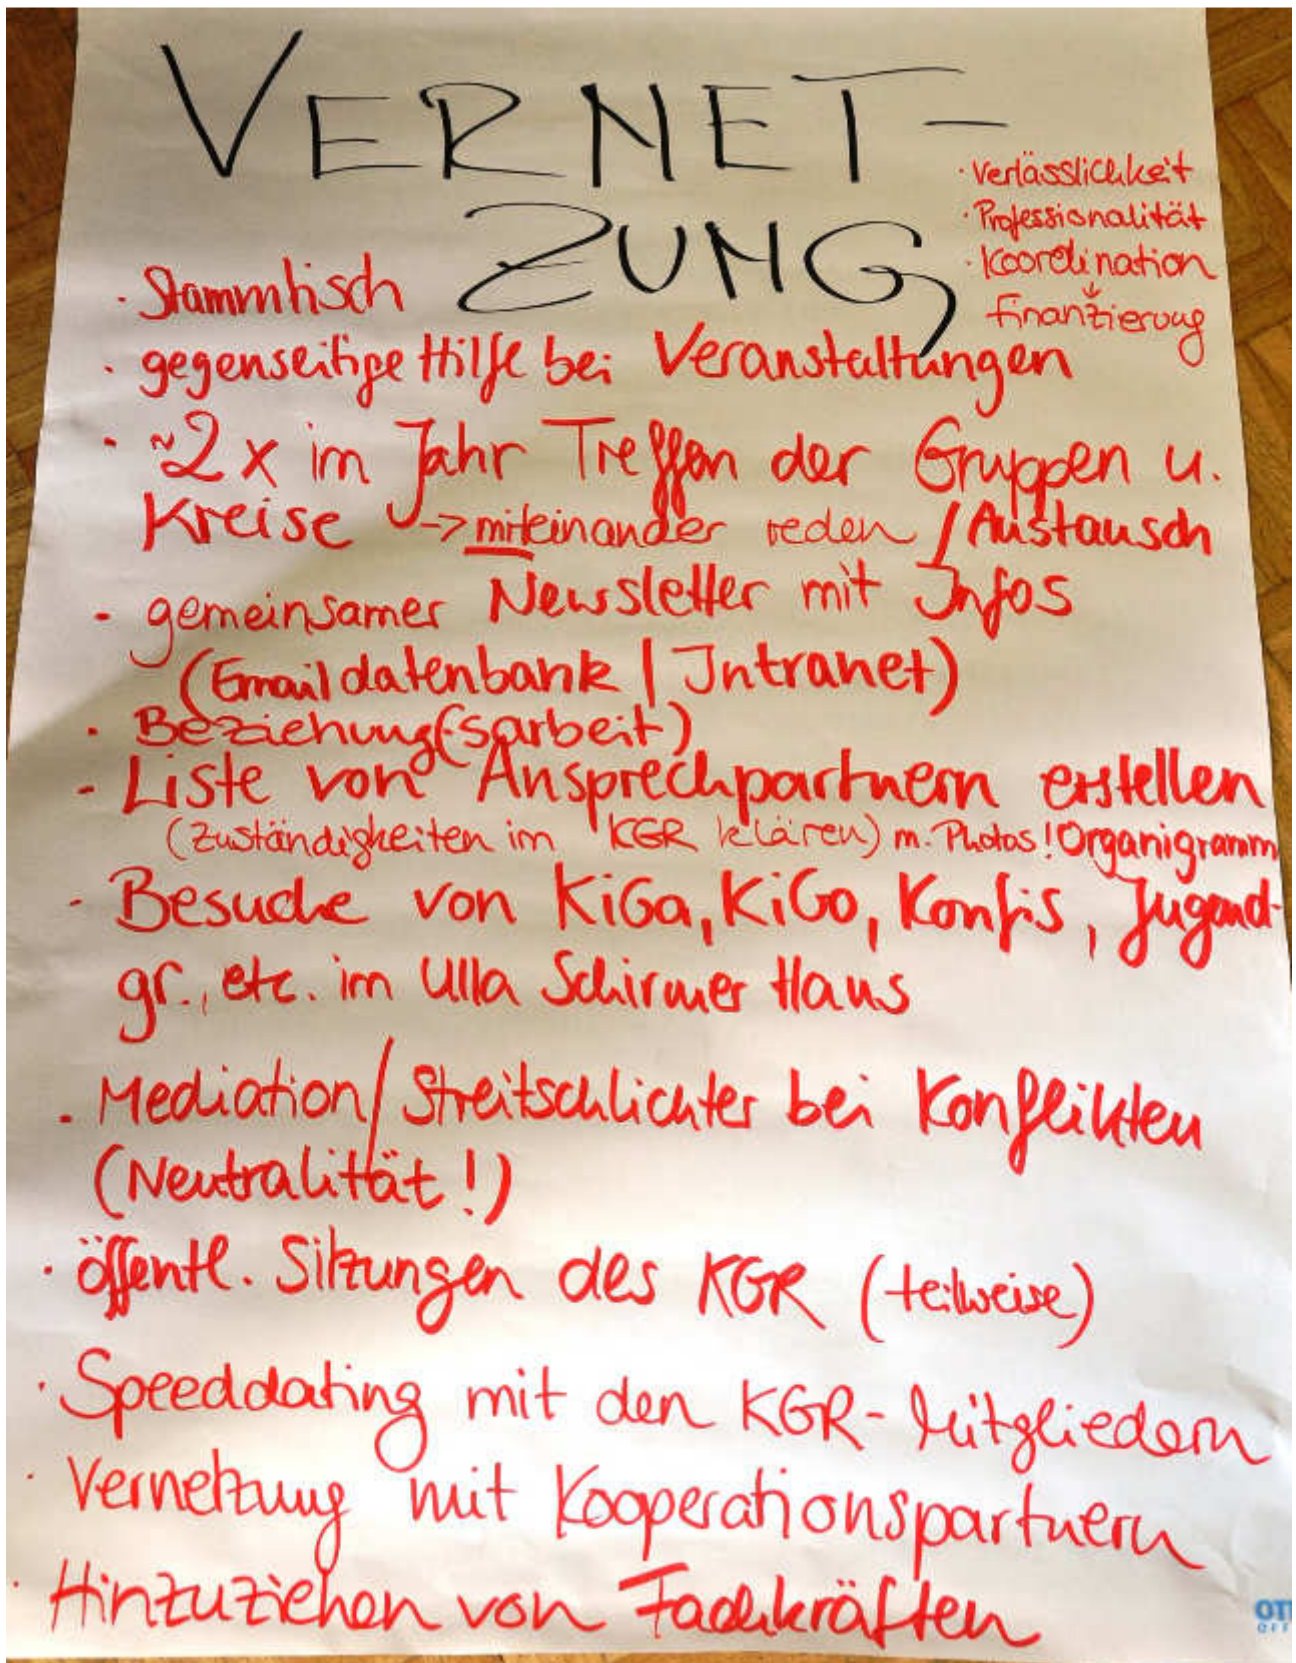 VERNET-
ZUNG
· Verlässlichkeit
· Professionalität
· Koordination
↓
Finanzierung
· Stammtisch
· gegenseitige Hilfe bei Veranstaltungen
· ~2x im Jahr Treffen der Gruppen u.
Kreise -> miteinander reden / Austausch
- gemeinsamer Newsletter mit Infos
(Emaildatenbank / Intranet)
· Beziehung(sarbeit)
- Liste von Ansprechpartnern erstellen
(Zuständigkeiten im KGR klären) m. Photos! Organigramm
- Besuche von KiGa, KiGo, Konfis, Jugend-
gr., etc. im Ulla Schirmer Haus
· Mediation / Streitschlichter bei Konflikten
(Neutralität!)
· öffentl. Sitzungen des KGR (teilweise)
· Speeddating mit den KGR-Mitgliedern
· Vernetzung mit Kooperationspartnern
· Hinzuziehen von Fachkräften